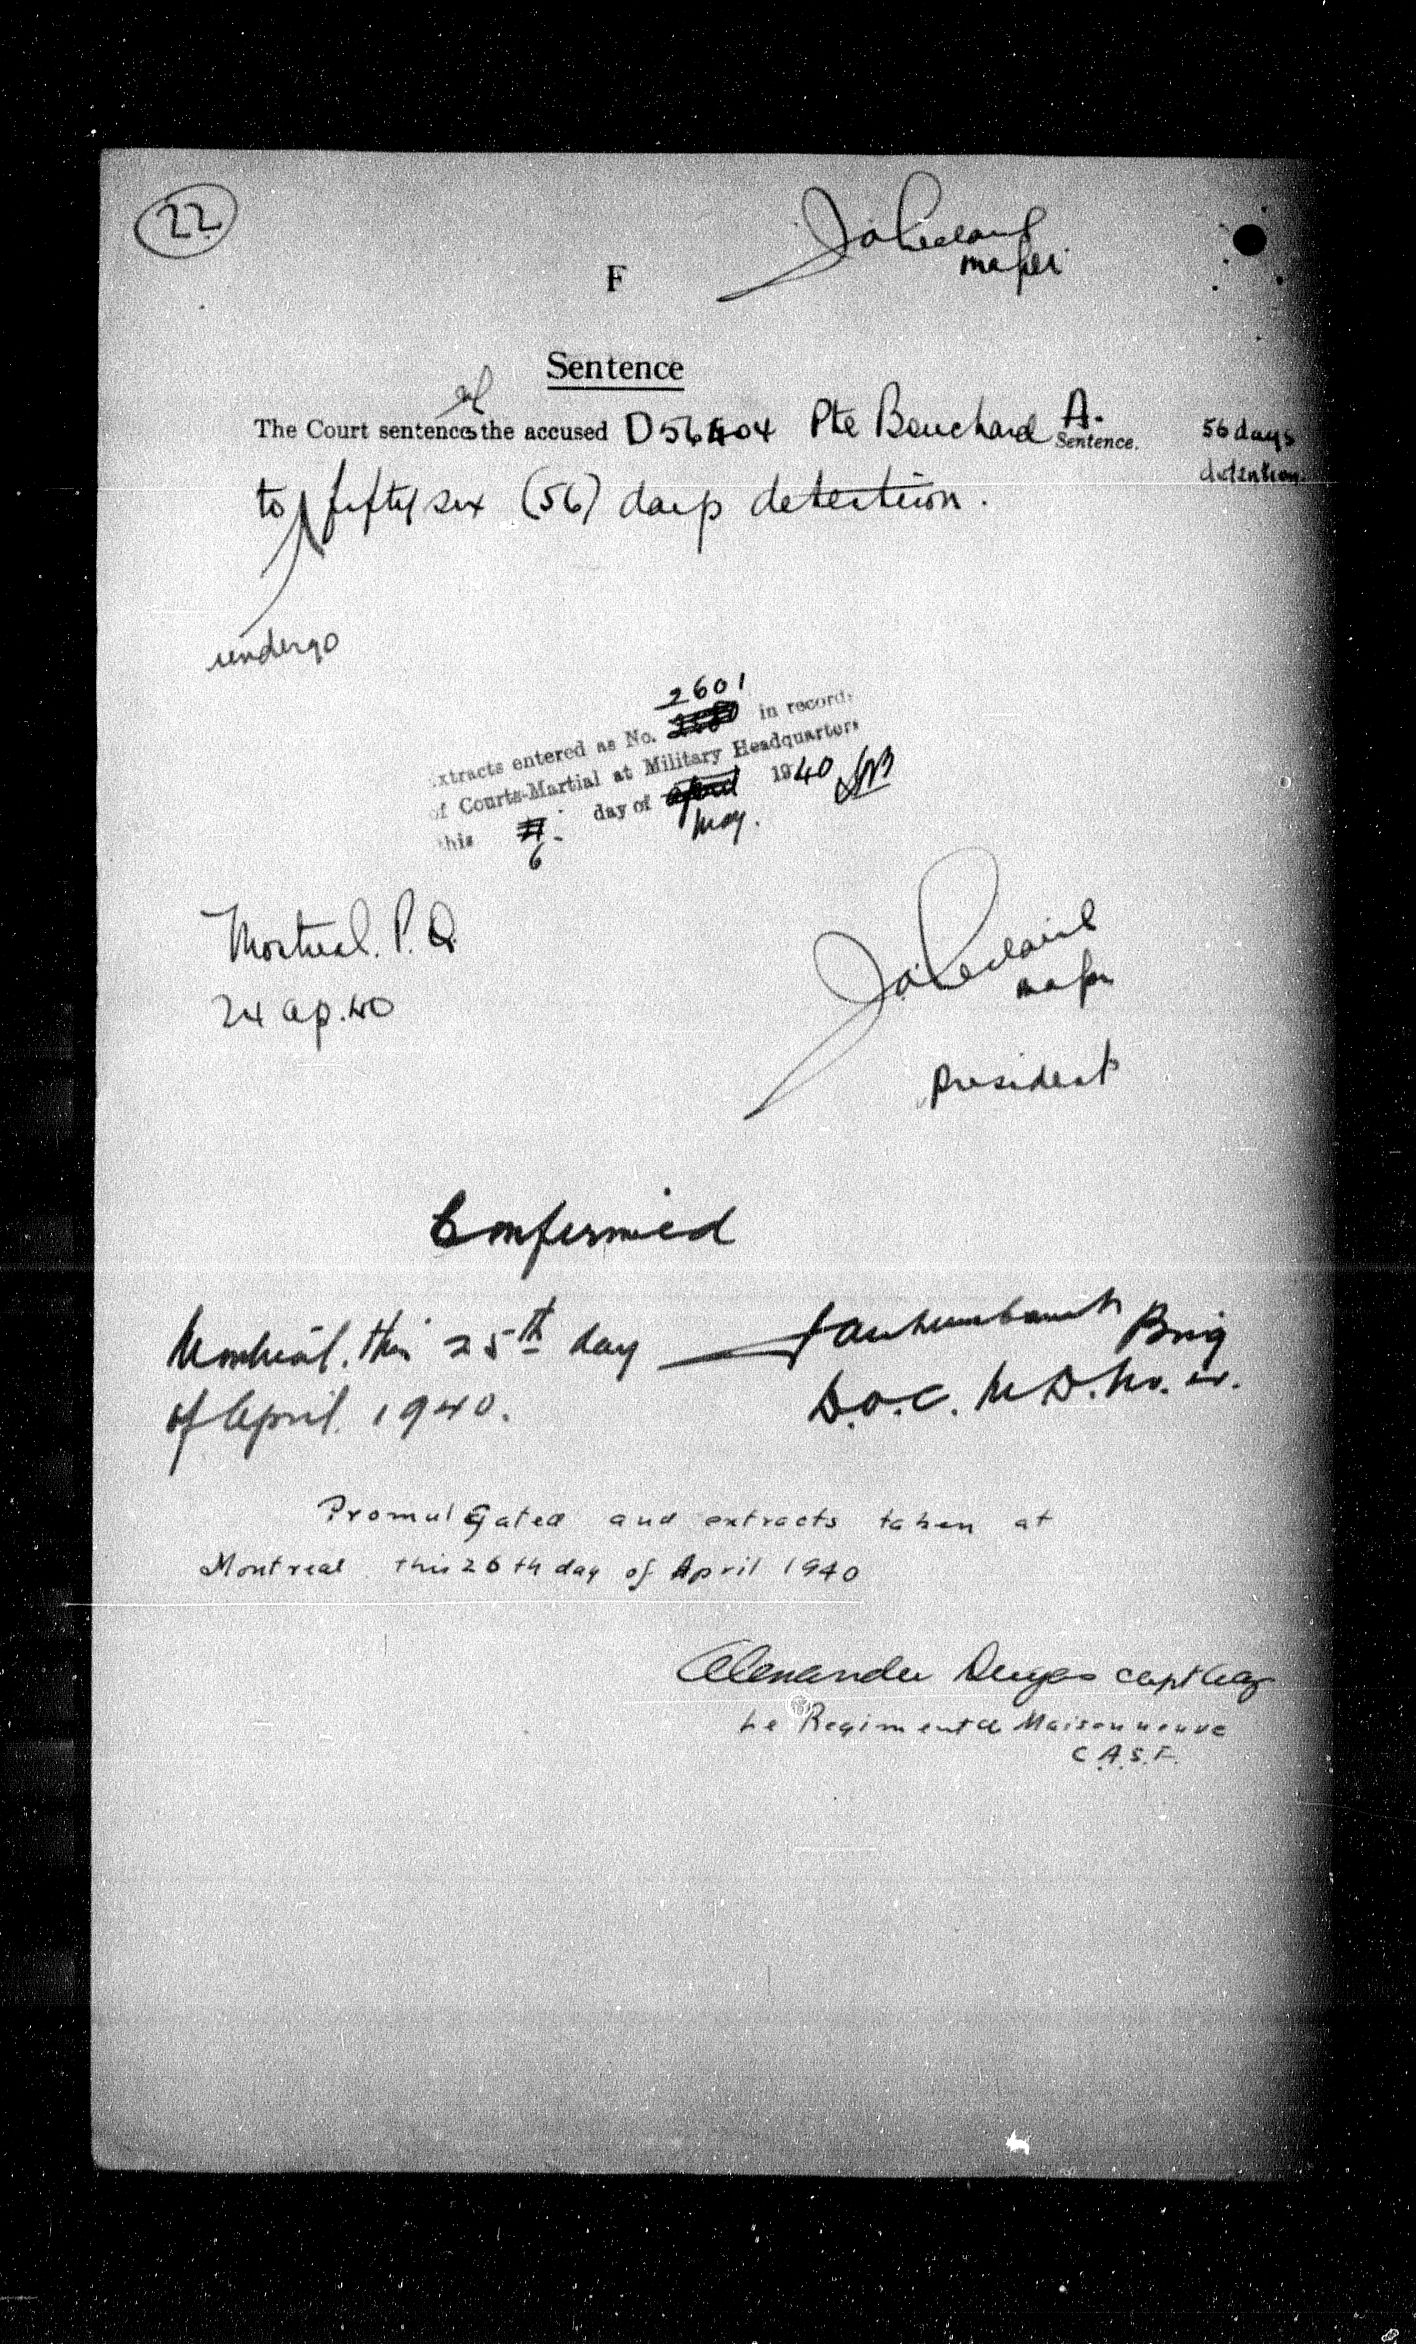 22
major
F
Sentence
The Court sentences the accused D56404 Pte Bouchard A.
Sentence.
56 days
detention.
to fifty six (56) days detention.
undergo
2601
Extracts entered as No. in records
of Courts-Martial at Military Headquarters
this day of April 1940
6 May.
Montreal. P.Q.
24 ap. 40
major
President
Confirmed
Montreal, this 25th day
of April. 1940.
Brig
D.O.C. M.D. No. 4.
Promulgated and extracts taken at
Montreal this 26th day of April 1940
Alexander Dugas Capt
Le Regiment de Maisonneuve
C.A.S.F.